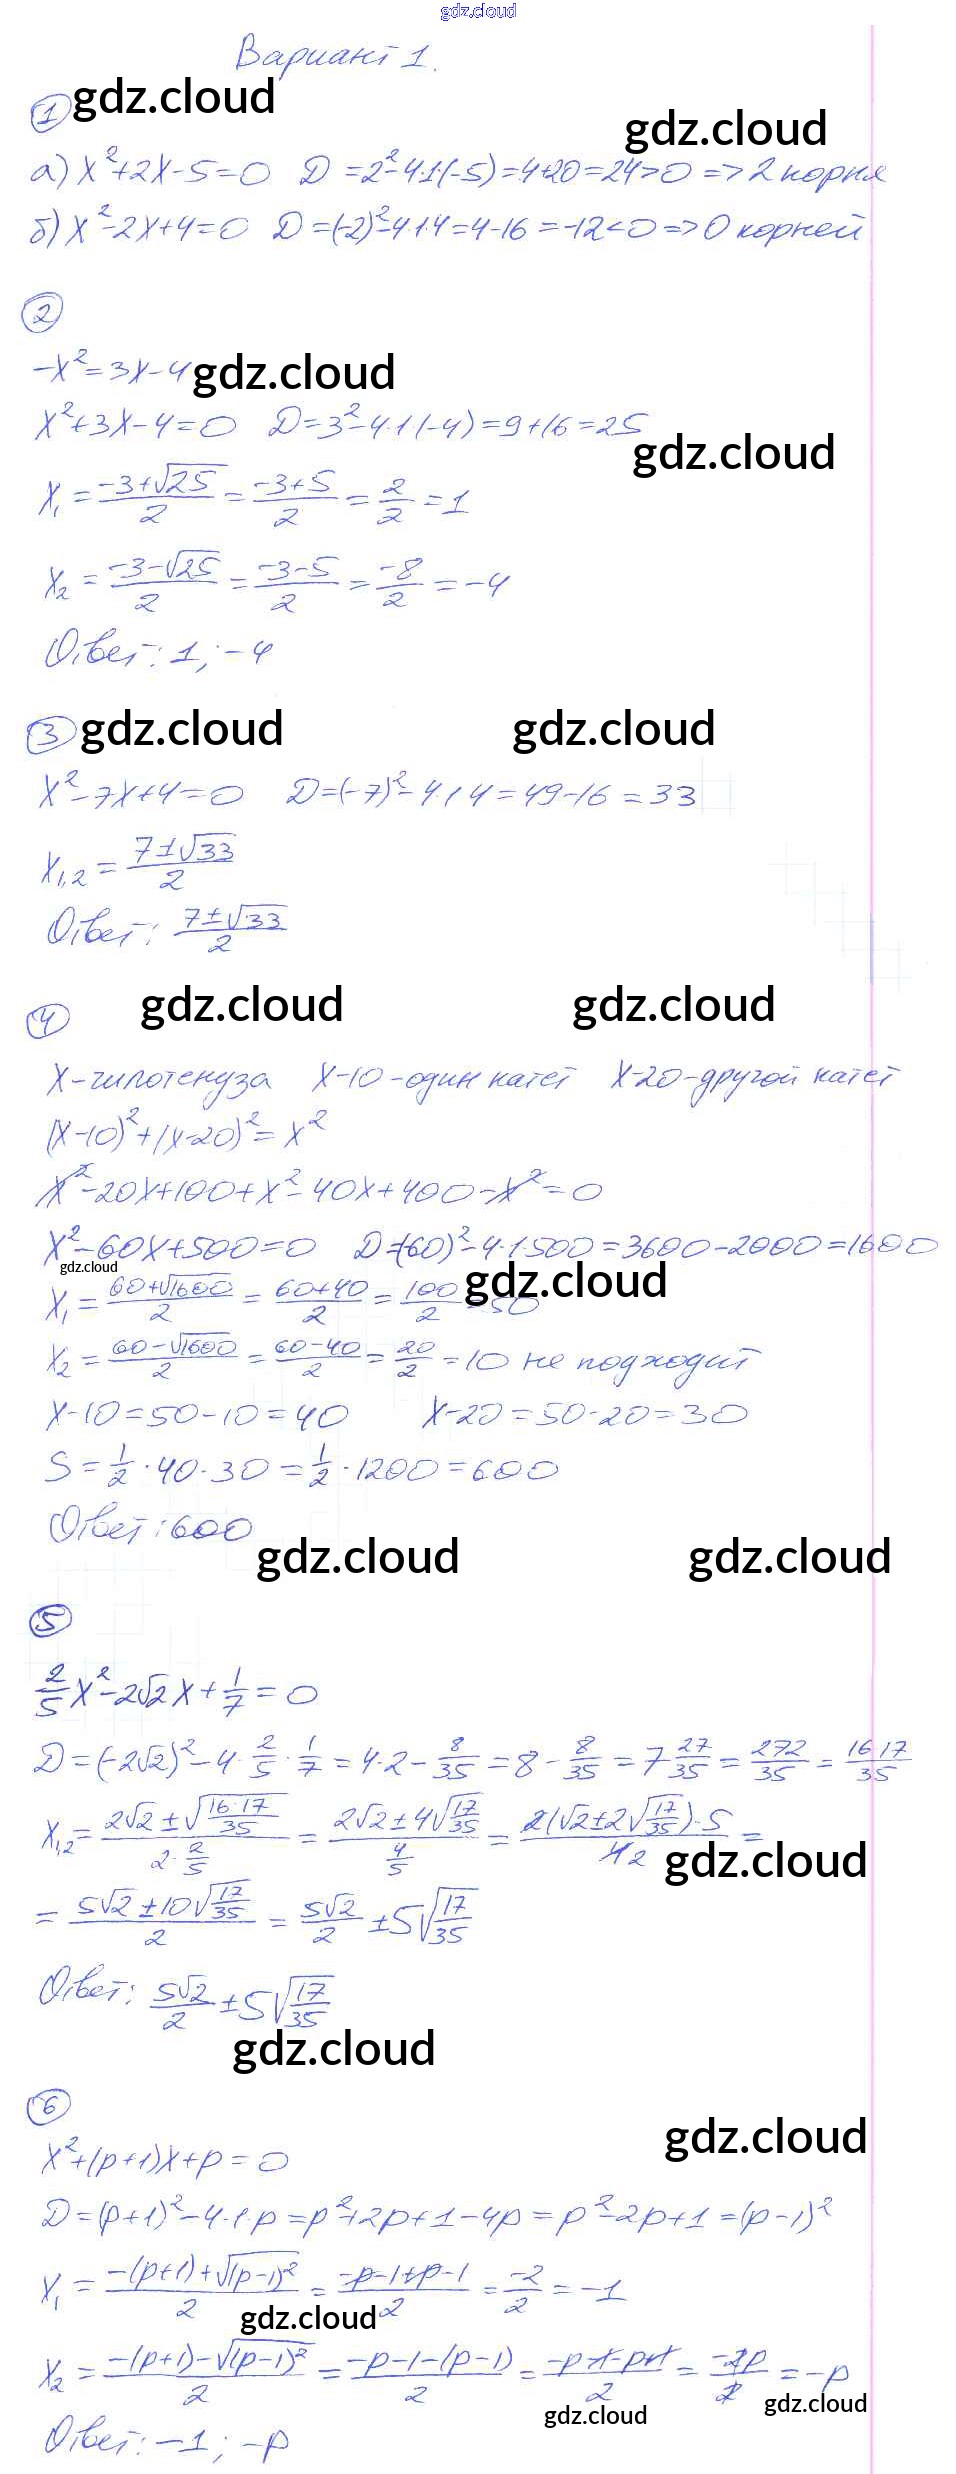 gdz.cloud
Вариант 1.
1 gdz.cloud
gdz.cloud
а) x²+2x-5=0 D=2²-4·1·(-5)=4+20=24>0 => 2 корня
б) x²-2x+4=0 D=(-2)²-4·1·4=4-16=-12<0 => 0 корней
2
-x²=3x-4 gdz.cloud
x²+3x-4=0 D=3²-4·1·(-4)=9+16=25
gdz.cloud
x₁=(-3+√25)/2=(-3+5)/2=2/2=1
x₂=(-3-√25)/2=(-3-5)/2=-8/2=-4
Ответ: 1; -4
3 gdz.cloud gdz.cloud
x²-7x+4=0 D=(-7)²-4·1·4=49-16=33
x₁,₂=(7±√33)/2
Ответ: (7±√33)/2
gdz.cloud gdz.cloud
4
x-гипотенуза x-10-один катет x-20-другой катет
(x-10)²+(x-20)²=x²
x²-20x+100+x²-40x+400-x²=0
x²-60x+500=0 D=(-60)²-4·1·500=3600-2000=1600
gdz.cloud gdz.cloud
x₁=(60+√1600)/2=(60+40)/2=100/2=50
x₂=(60-√1600)/2=(60-40)/2=20/2=10 не подходит
x-10=50-10=40 x-20=50-20=30
S=1/2·40·30=1/2·1200=600
Ответ: 600
gdz.cloud gdz.cloud
5
2/5x²-2√2x+1/7=0
D=(-2√2)²-4·2/5·1/7=4·2-8/35=8-8/35=7 27/35=272/35=16·17/35
x₁,₂=(2√2±√(16·17/35))/(2·2/5)=(2√2±4√(17/35))/(4/5)=(2(√2±2√(17/35))·5)/(4 2)=
gdz.cloud
=(5√2±10√(17/35))/2=5√2/2±5√(17/35)
Ответ: 5√2/2±5√(17/35)
gdz.cloud
6
gdz.cloud
x²+(p+1)x+p=0
D=(p+1)²-4·1·p=p²+2p+1-4p=p²-2p+1=(p-1)²
x₁=(-(p+1)+√(p-1)²)/2=(-p-1+p-1)/2=-2/2=-1
gdz.cloud
x₂=(-(p+1)-√(p-1)²)/2=(-p-1-(p-1))/2=(-p-1-p+1)/2=-2p/2=-p
gdz.cloud gdz.cloud
Ответ: -1; -p